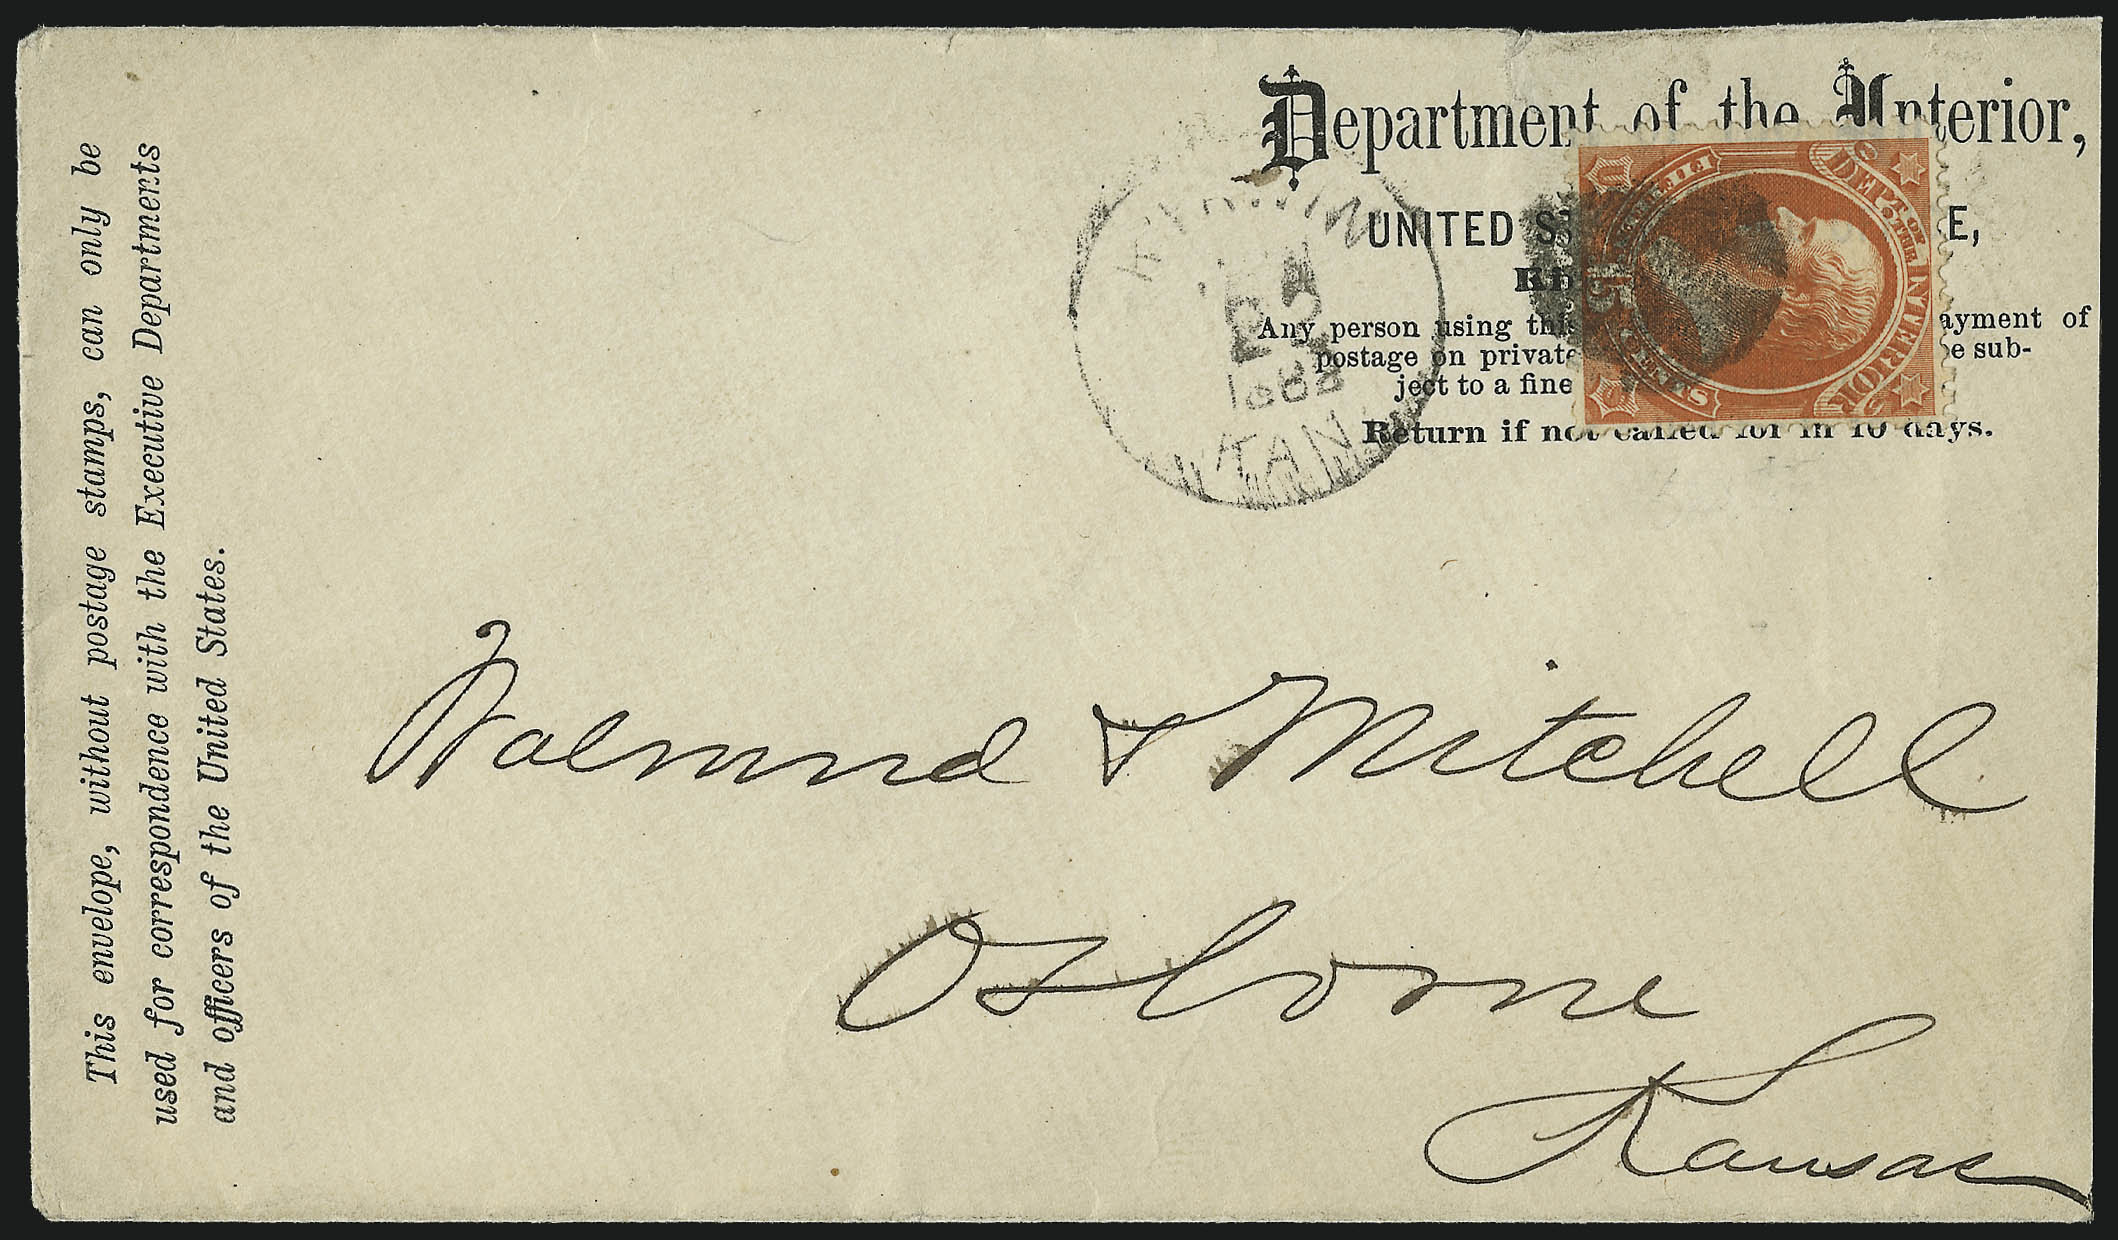 Department of the Interior,
UNITED S E,
Any person using this ayment of
postage on private e sub-
ject to a fine
Return if not called for in 10 days.
KIRWIN
23
1882
KAN
U S
DEPT OF THE INTERIOR
FIFTEEN
15
CENTS
This envelope, without postage stamps, can only be
used for correspondence with the Executive Departments
and officers of the United States.
Walrond & Mitchell
Osborne
Kansas